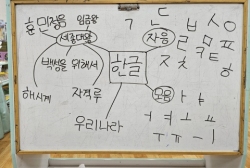 훈민정음 임금왕
세종대왕
백성을 위해서
해시계 자격루
우리나라
한글
자음
ㄱ ㄴ ㄷ ㅂ ㅅ ㅇ
ㄹ ㅁ ㅋ ㅌ ㅍ
ㅈ ㅊ ㅎ
모음
ㅏ ㅑ
ㅓ ㅕ ㅗ ㅛ
ㅜ ㅠ ㅡ ㅣ